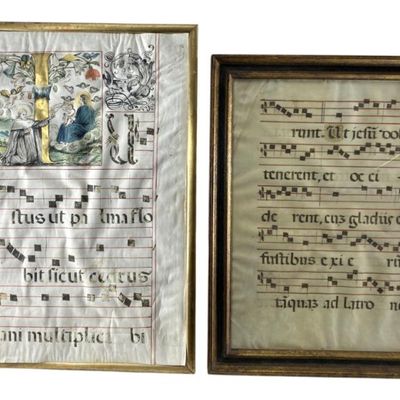 I U
stus ut pa lma flo
bit sicut cedrus
ani multiplica bi
runt. Ut jesū dol
tenerent, et oc ci
de rent, cuȝ gladiis e
fustibus exi e rū
tāquaȝ ad latro ne